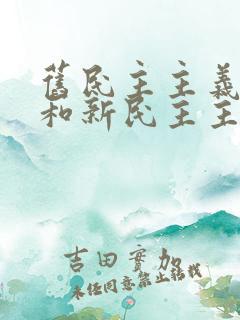 舊民主主義
和新民主主
吉田實加
未經同意禁止轉載